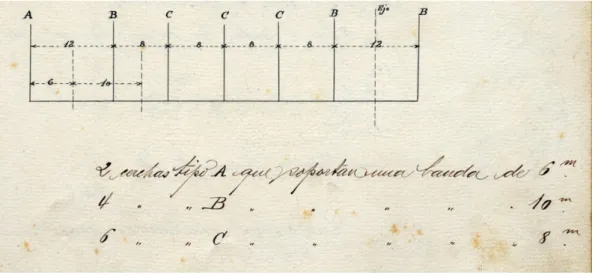 A B C C C B Eje B
12 8 8 8 8 12
6 10
2 cerchas tipo A que soportan una banda de 6 m.
4 " " B " " " " . 10 m.
6 " " C " " " " " 8 m.